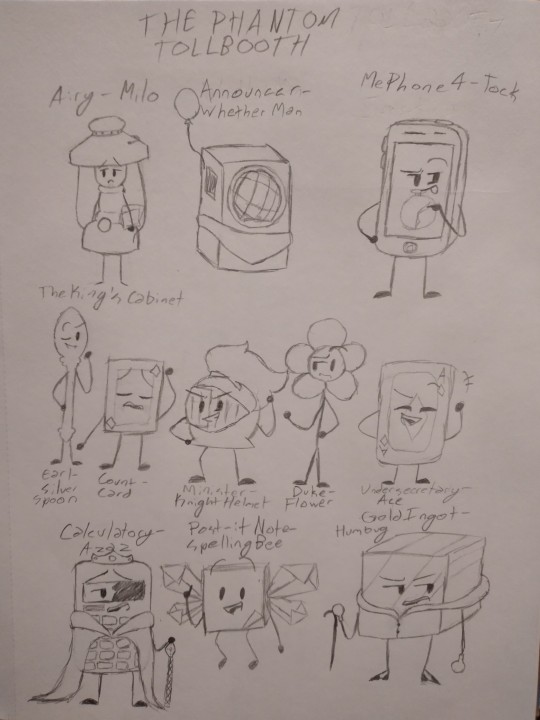 THE PHANTOM
TOLLBOOTH
Airy - Milo
Announcer-
Whether Man
MePhone4-Tock
The King's Cabinet
Earl-
Silver
Spoon
Count-
Card
Minister-
Knight Helmet
Duke-
Flower
Undersecretary-
Ace
Calculatory-
Azaz
Post-it Note-
Spelling Bee
Gold Ingot-
Humbug
A